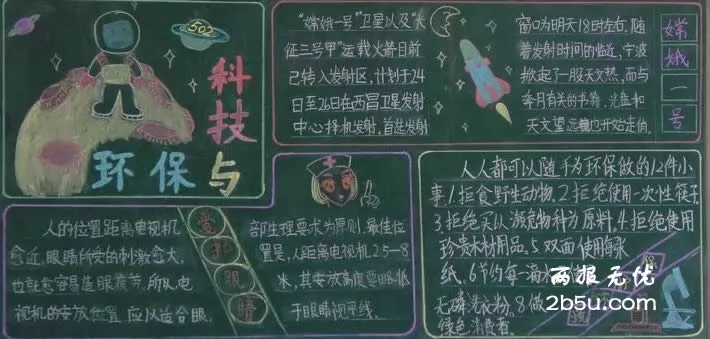 502
科技与
环保
“嫦娥一号”卫星以及“长
征三号甲”运载火箭目前
已转入发射区,计划于24
日至26日在西昌卫星发射
中心择机发射,首选发射
窗口为明天18时左右,随
着发射时间的临近,宁波
掀起了一股天文热,而与
奔月有关的书籍、光盘和
天文望远镜也开始走俏。
嫦娥一号
人的位置距离电视机
愈近,眼睛所受的刺激愈大,
也就愈容易造成眼疲劳,所以电
视机的安放位置,应以适合眼
爱护眼睛
部生理要求为原则,最佳位
置是,人距离电视机2.5—8
米,其安放高度要略低
于眼睛视平线.
人人都可以随手为环保做的12件小
事:1.拒食野生动物.2.拒绝使用一次性筷子
3.拒绝买以濒危物种为原料.4.拒绝使用
珍贵木材用品.5.双面使用每张
纸.6节约每一滴水
无磷洗衣粉.8做
绿色消费者.
两报无优
2b5u.com